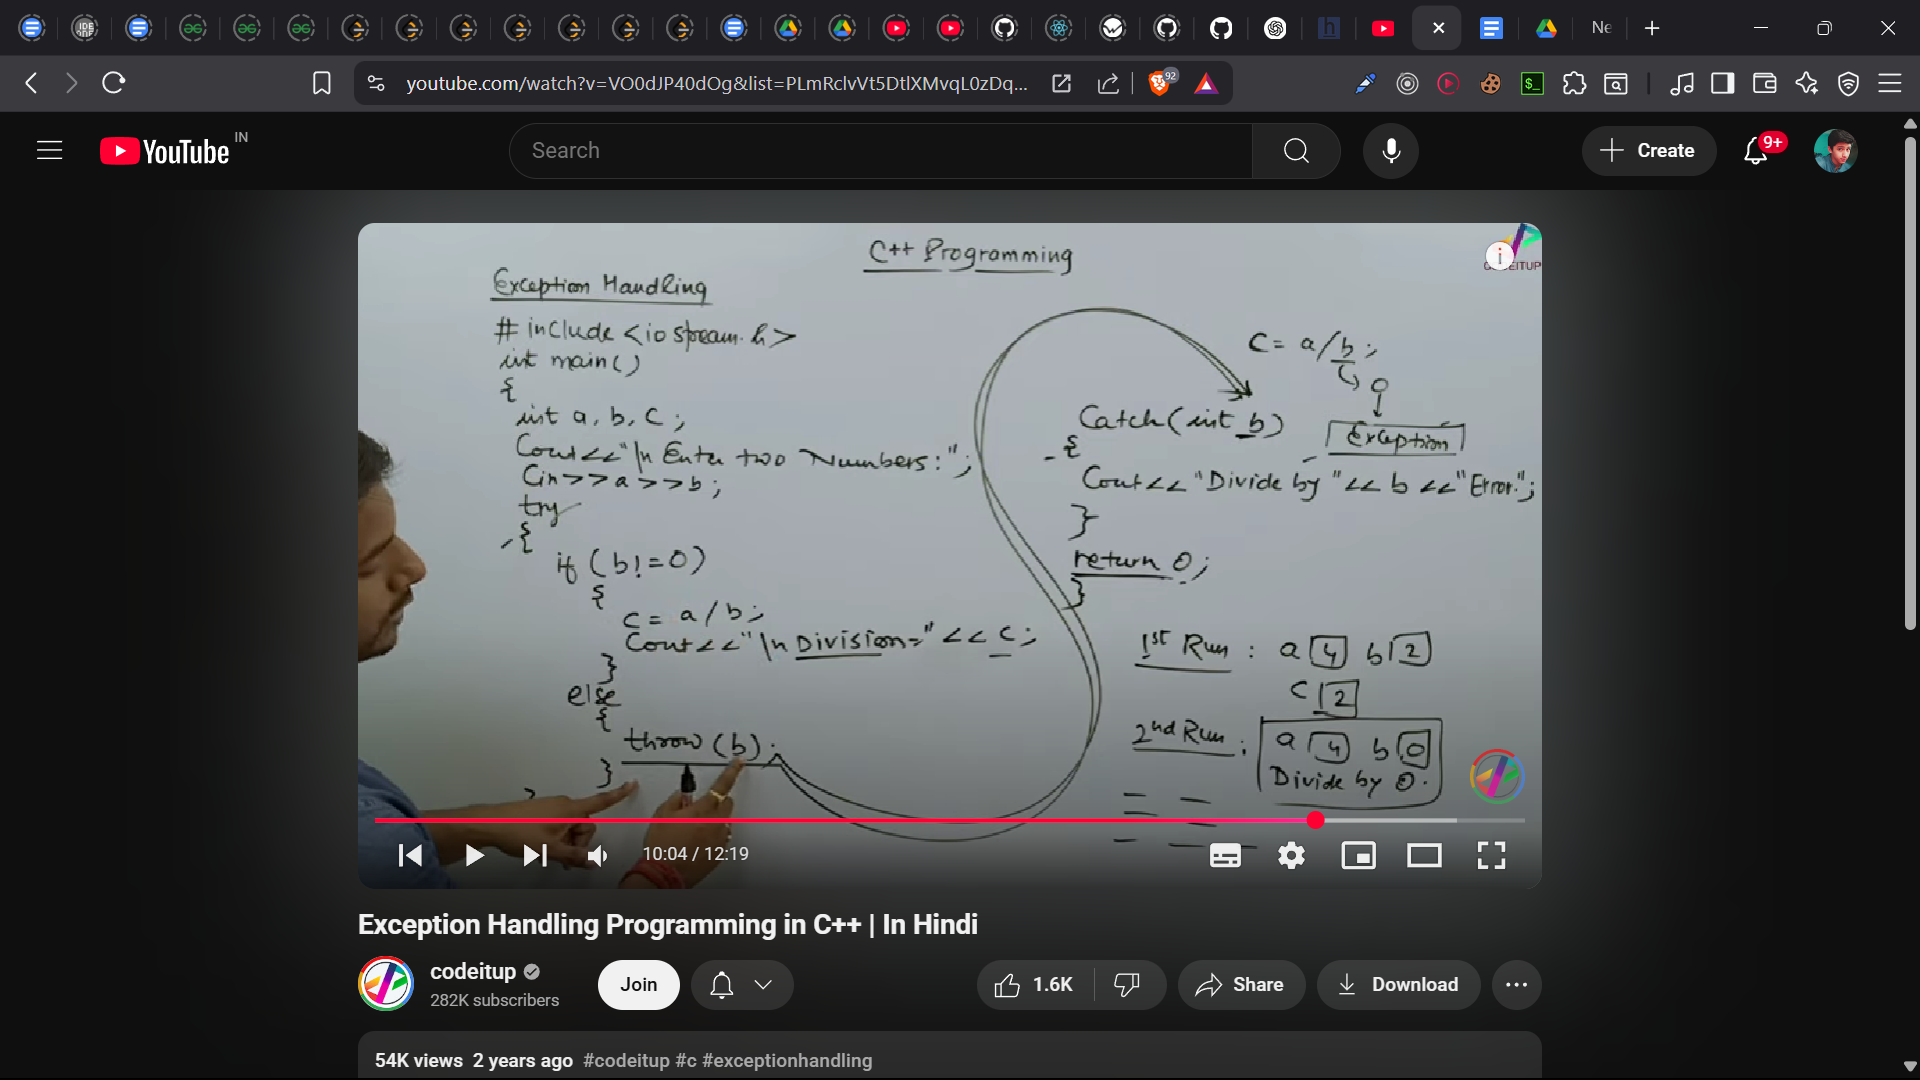 Ne
youtube.com/watch?v=VO0dJP40dOg&list=PLmRclvVt5DtlXMvqL0zDq...
92
YouTube IN
Search
Create
9+
C++ Programming
Exception Handling
# include <iostream.h>
int main()
{
int a, b, c;
Cout<<"\n Enter two Numbers:";
Cin>>a>>b;
try
{
if (b!=0)
{
c = a/b;
Cout<<"\n Division=" << c;
}
else
{
throw (b);
}
}
C = a/b;
0
Exception
Catch(int b)
{
Cout<< "Divide by "<< b <<"Error.";
}
return 0;
}
1st Run : a 4 b 2
c 2
2nd Run : a 4 b 0
Divide by 0.
10:04 / 12:19
Exception Handling Programming in C++ | In Hindi
codeitup
282K subscribers
Join
1.6K
Share
Download
54K views 2 years ago #codeitup #c #exceptionhandling